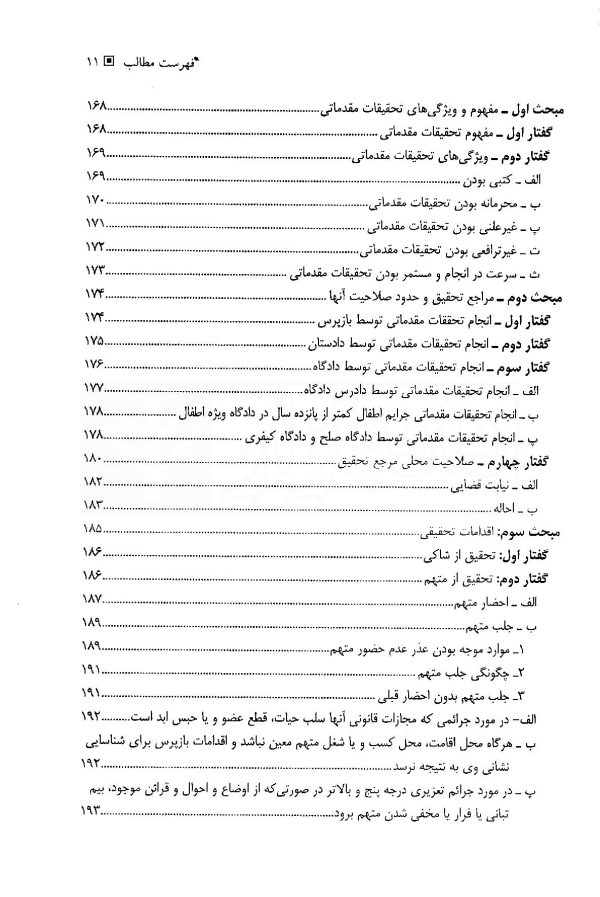 فهرست مطالب ▣ ۱۱
مبحث اول ـ مفهوم و ویژگی‌های تحقیقات مقدماتی......۱۶۸
گفتار اول ـ مفهوم تحقیقات مقدماتی......۱۶۸
گفتار دوم ـ ویژگی‌های تحقیقات مقدماتی......۱۶۹
الف ـ کتبی بودن......۱۶۹
ب ـ محرمانه بودن تحقیقات مقدماتی......۱۷۰
پ ـ غیرعلنی بودن تحقیقات مقدماتی......۱۷۱
ت ـ غیرترافعی بودن تحقیقات مقدماتی......۱۷۲
ث ـ سرعت در انجام و مستمر بودن تحقیقات مقدماتی......۱۷۳
مبحث دوم ـ مراجع تحقیق و حدود صلاحیت آنها......۱۷۴
گفتار اول ـ انجام تحققات مقدماتی توسط بازپرس......۱۷۴
گفتار دوم ـ انجام تحقیقات مقدماتی توسط دادستان......۱۷۵
گفتار سوم ـ انجام تحقیقات مقدماتی توسط دادگاه......۱۷۶
الف ـ انجام تحقیقات مقدماتی توسط دادرس دادگاه......۱۷۷
ب ـ انجام تحقیقات مقدماتی جرایم اطفال کمتر از پانزده سال در دادگاه ویژه اطفال......۱۷۸
پ ـ انجام تحقیقات مقدماتی توسط دادگاه صلح و دادگاه کیفری......۱۷۸
گفتار چهارم ـ صلاحیت محلی مرجع تحقیق......۱۸۰
الف ـ نیابت قضایی......۱۸۲
ب ـ احاله......۱۸۳
مبحث سوم: اقدامات تحقیقی......۱۸۵
گفتار اول: تحقیق از شاکی......۱۸۶
گفتار دوم: تحقیق از متهم......۱۸۶
الف ـ احضار متهم......۱۸۷
ب ـ جلب متهم......۱۸۹
۱ـ موارد موجه بودن عذر عدم حضور متهم......۱۸۹
۲ـ چگونگی جلب متهم......۱۹۱
۳ـ جلب متهم بدون احضار قبلی......۱۹۱
الف- در مورد جرائمی که مجازات قانونی آنها سلب حیات، قطع عضو و یا حبس ابد است......۱۹۲
ب ـ هرگاه محل اقامت، محل کسب و یا شغل متهم معین نباشد و اقدامات بازپرس برای شناسایی
نشانی وی به نتیجه نرسد......۱۹۲
پ ـ در مورد جرائم تعزیری درجه پنج و بالاتر در صورتی‌که از اوضاع و احوال و قرائن موجود، بیم
تبانی یا فرار یا مخفی شدن متهم برود......۱۹۳